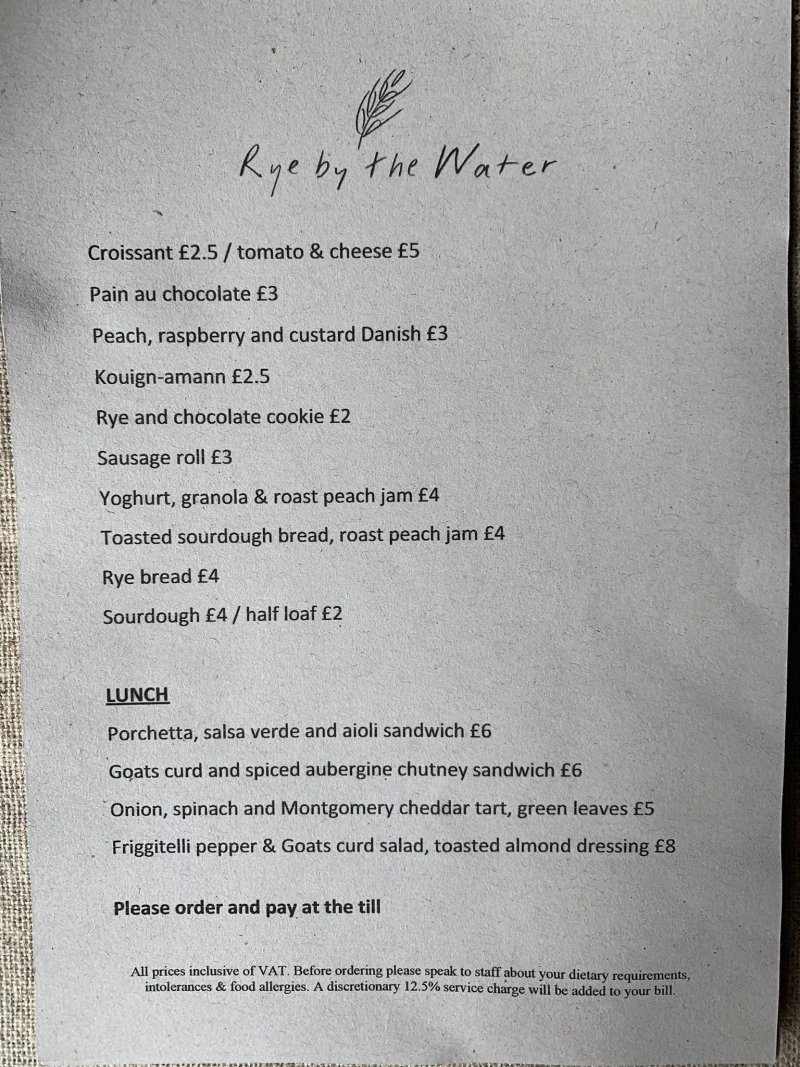 Rye by the Water
Croissant £2.5 / tomato & cheese £5
Pain au chocolate £3
Peach, raspberry and custard Danish £3
Kouign-amann £2.5
Rye and chocolate cookie £2
Sausage roll £3
Yoghurt, granola & roast peach jam £4
Toasted sourdough bread, roast peach jam £4
Rye bread £4
Sourdough £4 / half loaf £2
LUNCH
Porchetta, salsa verde and aioli sandwich £6
Goats curd and spiced aubergine chutney sandwich £6
Onion, spinach and Montgomery cheddar tart, green leaves £5
Friggitelli pepper & Goats curd salad, toasted almond dressing £8
Please order and pay at the till
All prices inclusive of VAT. Before ordering please speak to staff about your dietary requirements,
intolerances & food allergies. A discretionary 12.5% service charge will be added to your bill.